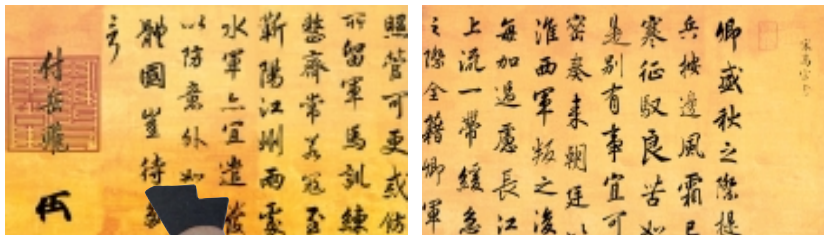 宋高宗
卿盛秋之際提
兵按邊風霜已
寒征馭良苦如
是別有事宜可
密奏來朝廷以
淮西軍叛之後
每加過慮長江
上流一帶緩急
之際全藉卿軍
照管可更戒飭
所留軍馬訓練
整齊常若寇至
蘄陽江州兩處
水軍亦宜遣發
以防意外如
體國豈待多
言
付岳飛